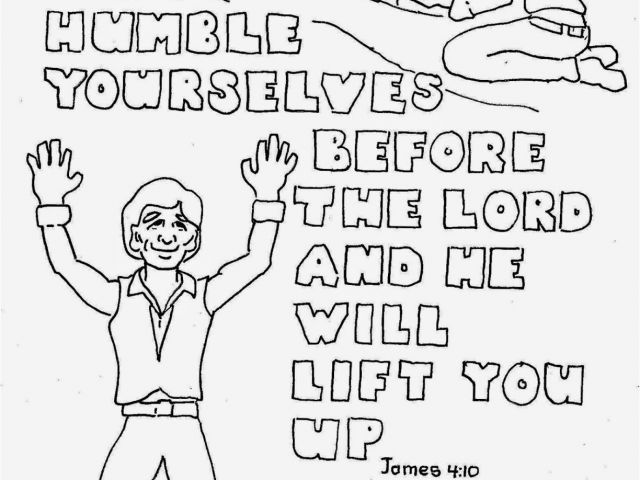 HUMBLE
YOURSELVES
BEFORE
THE LORD
AND HE
WILL
LIFT YOU
UP
James 4:10